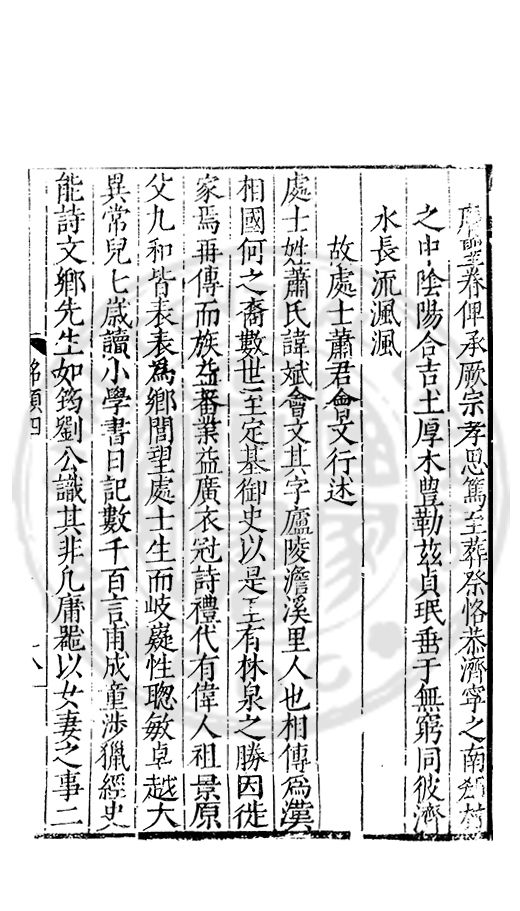 眷俾承厥宗孝思篤至葬祭恪恭濟寧之南
之中陰陽合吉土厚木豊勒茲貞珉垂于無窮同彼濟
水長流渢渢
故處士蕭君會文行述
處士姓蕭氏諱斌會文其字廬陵澹溪里人也相傳爲漢
相國何之裔數世至定基御史以是里有林泉之勝因徙
家焉再傳而族益蕃業益廣衣冠詩禮代有偉人祖景原
父九和皆表表爲鄉閭望處士生而岐嶷性聰敏卓越大
異常兒七歲讀小學書日記數千百言甫成童涉獵經史
能詩文鄉先生如筠劉公識其非凡庸器以女妻之事二